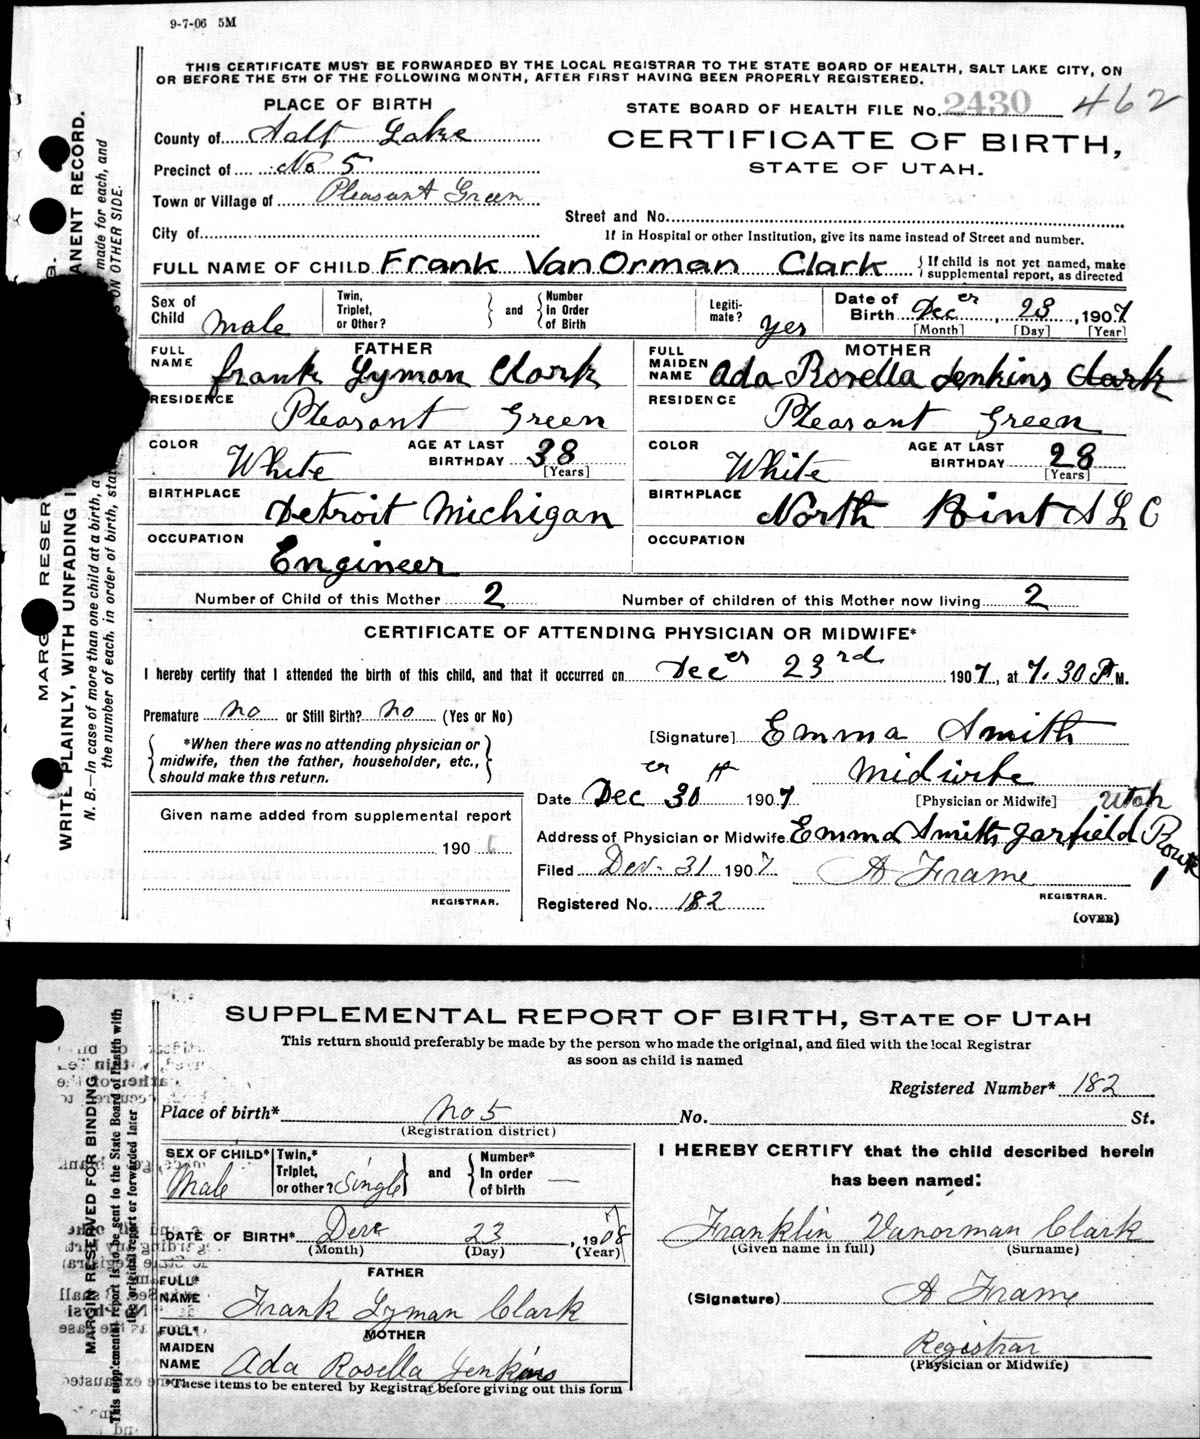 9-7-06 5M
THIS CERTIFICATE MUST BE FORWARDED BY THE LOCAL REGISTRAR TO THE STATE BOARD OF HEALTH, SALT LAKE CITY, ON
OR BEFORE THE 5TH OF THE FOLLOWING MONTH, AFTER FIRST HAVING BEEN PROPERLY REGISTERED.
PLACE OF BIRTH
STATE BOARD OF HEALTH FILE No. 2430 462
County of Salt Lake
CERTIFICATE OF BIRTH,
STATE OF UTAH.
Precinct of No 5
Town or Village of Pleasant Green
Street and No.
City of
If in Hospital or other Institution, give its name instead of Street and number.
FULL NAME OF CHILD Frank VanOrman Clark { If child is not yet named, make
supplemental report, as directed
Sex of Child Male
Twin, Triplet, or Other? } and { Number In Order of Birth
Legitimate? yes
Date of Birth Decer, 23, 1907
[Month] [Day] [Year]
FATHER
FULL NAME frank Lyman Clark
RESIDENCE Pleasant Green
COLOR White AGE AT LAST BIRTHDAY 38 [Years]
BIRTHPLACE Detroit Michigan
OCCUPATION Engineer
MOTHER
FULL MAIDEN NAME Ada Rosella Jenkins Clark
RESIDENCE Pleasant Green
COLOR White AGE AT LAST BIRTHDAY 28 [Years]
BIRTHPLACE North Point S L C
OCCUPATION
Number of Child of this Mother 2 Number of children of this Mother now living 2
CERTIFICATE OF ATTENDING PHYSICIAN OR MIDWIFE*
I hereby certify that I attended the birth of this child, and that it occurred on Decer 23rd 1907, at 7.30 P M.
Premature no or Still Birth? no (Yes or No)
*When there was no attending physician or
midwife, then the father, householder, etc.,
should make this return.
[Signature] Emma Smith
midwife
[Physician or Midwife]
Date Decer 30 1907
Given name added from supplemental report
190
REGISTRAR.
Address of Physician or Midwife Emma Smith garfield Utah Route 1
Filed Dec. 31 1907 A Frame
REGISTRAR.
Registered No. 182
(OVER)
MARGIN RESER
WRITE PLAINLY, WITH UNFADING I
ANENT RECORD.
N. B.—In case of more than one child at a birth, a
made for each, and
the number of each, in order of birth, stat
S ON OTHER SIDE.
SUPPLEMENTAL REPORT OF BIRTH, STATE OF UTAH
This return should preferably be made by the person who made the original, and filed with the local Registrar
as soon as child is named
Registered Number* 182
Place of birth* No 5 No. St.
(Registration district)
SEX OF CHILD* Male
Twin,* Triplet, or other? Single } and { Number* In order of birth —
DATE OF BIRTH* Decr 23, 1908
(Month) (Day) (Year)
FATHER
FULL* NAME Frank Lyman Clark
MOTHER
FULL* MAIDEN NAME Ada Rosella Jenkins
*These items to be entered by Registrar before giving out this form
I HEREBY CERTIFY that the child described herein
has been named:
Franklin Vanorman Clark
(Given name in full) (Surname)
(Signature) A Frame
Registrar
(Physician or Midwife)
MARGIN RESERVED FOR BINDING
This supplemental report is to be sent to the State Board of Health with
the original report or forwarded later